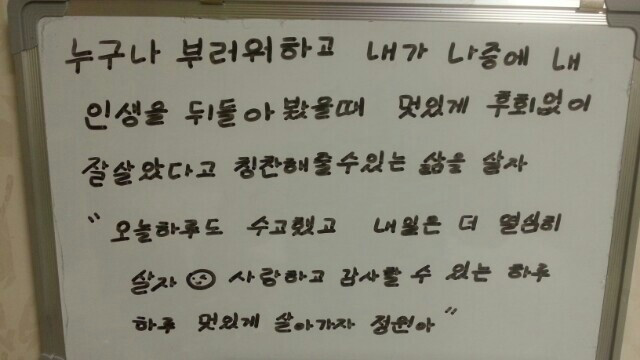 누구나 부러워하고 내가 나중에 내
인생을 뒤돌아 봤을때 멋있게 후회없이
잘살았다고 칭찬해줄수있는 삶을 살자
"오늘하루도 수고했고 내일은 더 열심히
살자 ☺ 사랑하고 감사할 수 있는 하루
하루 멋있게 살아가자 정원아"